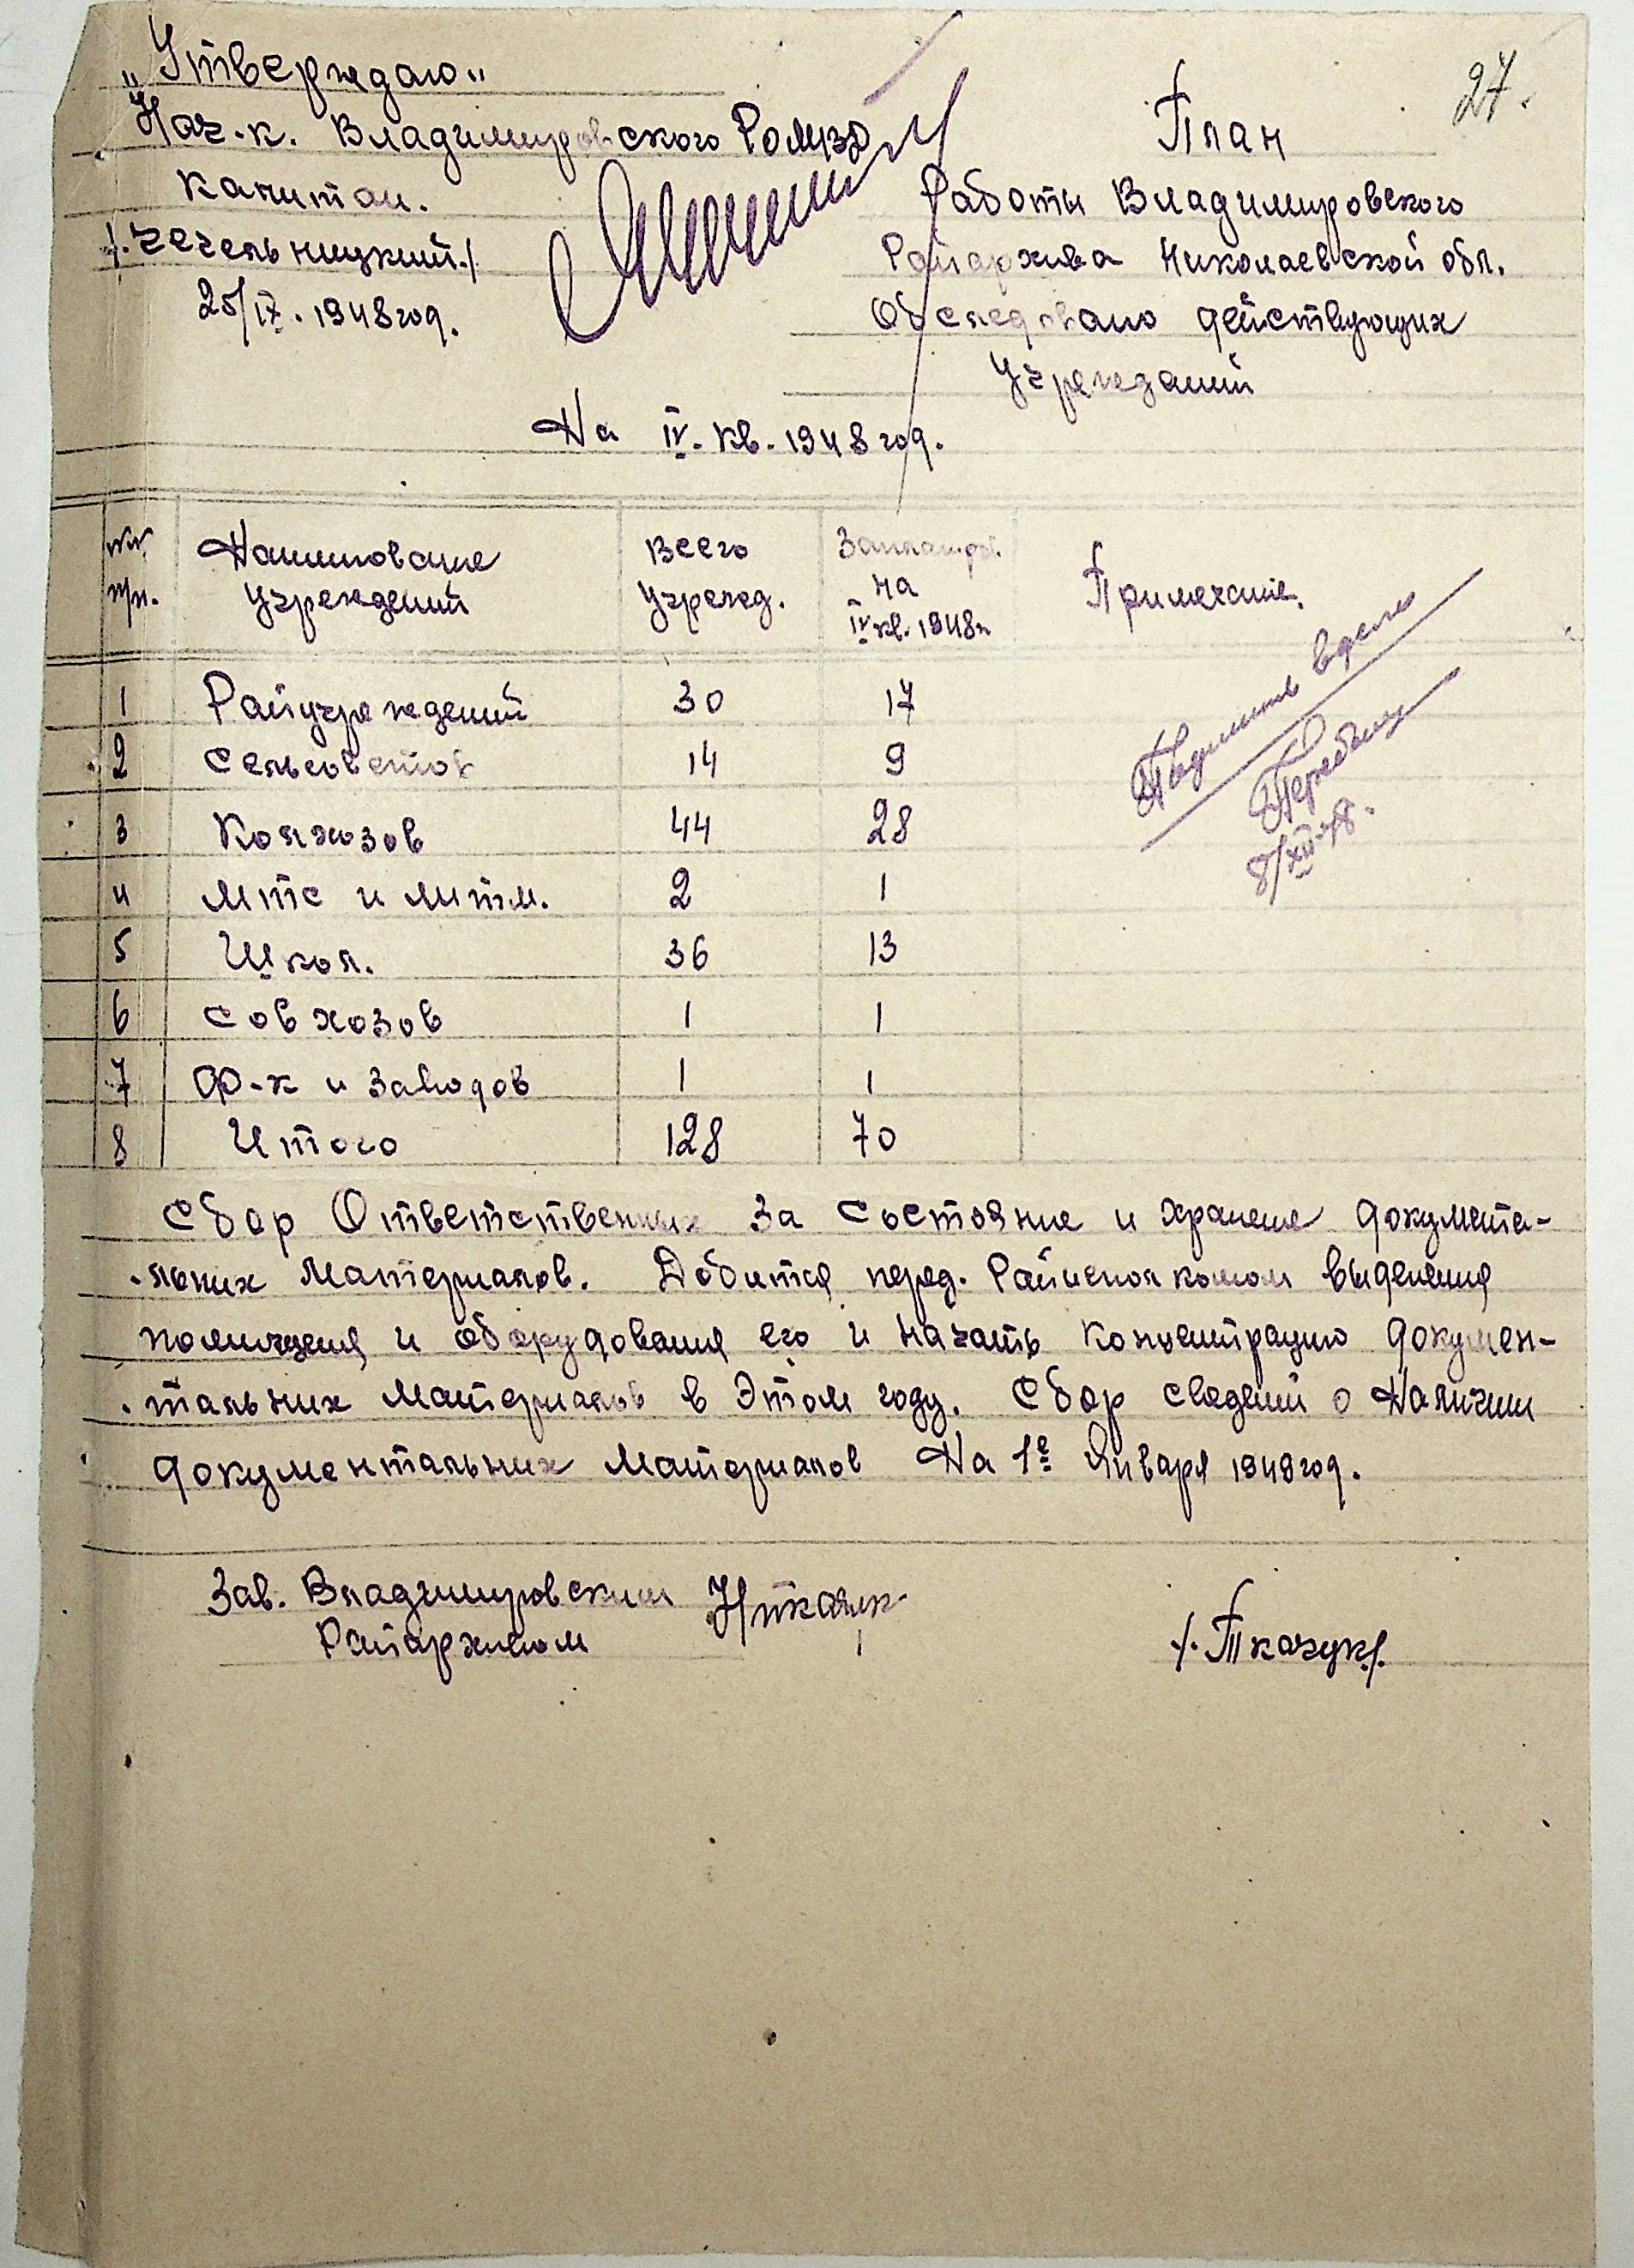 27.
„Утверждаю“
Нач-к. Владимировского РОМВД
капитан.
/.Чечельницкий./
25/IX. 1948 год.
План
Работы Владимировского
Райархива Николаевской обл.
Обследовано действующих
Учреждений
На IV. кв. 1948 год.
№№ п/п. | Наименование учреждений | Всего учрежд. | Запланиров. на IV кв. 1948 г. | Примечание.
1 Райучреждений 30 17
2 Сельсоветов 14 9
3 Колхозов 44 28
4 МТС и МТМ. 2 1
5 Школ. 36 13
6 Совхозов 1 1
7 Ф-к и Заводов 1 1
8 Итого 128 70
Подшить в дело
8/XII-48.
Сбор Ответственных За Состояние и хранение документа-
льних Материалов. Добится перед. Райисполкомом выделения
помищения и оборудования его и начать Концентрацию докумен-
тальних Материалов в Этом году. Сбор сведений о Наличии
документальних Материалов На 1е Января 1949 год.
Зав. Владимировским
Райархивом
/.Ткачук/.